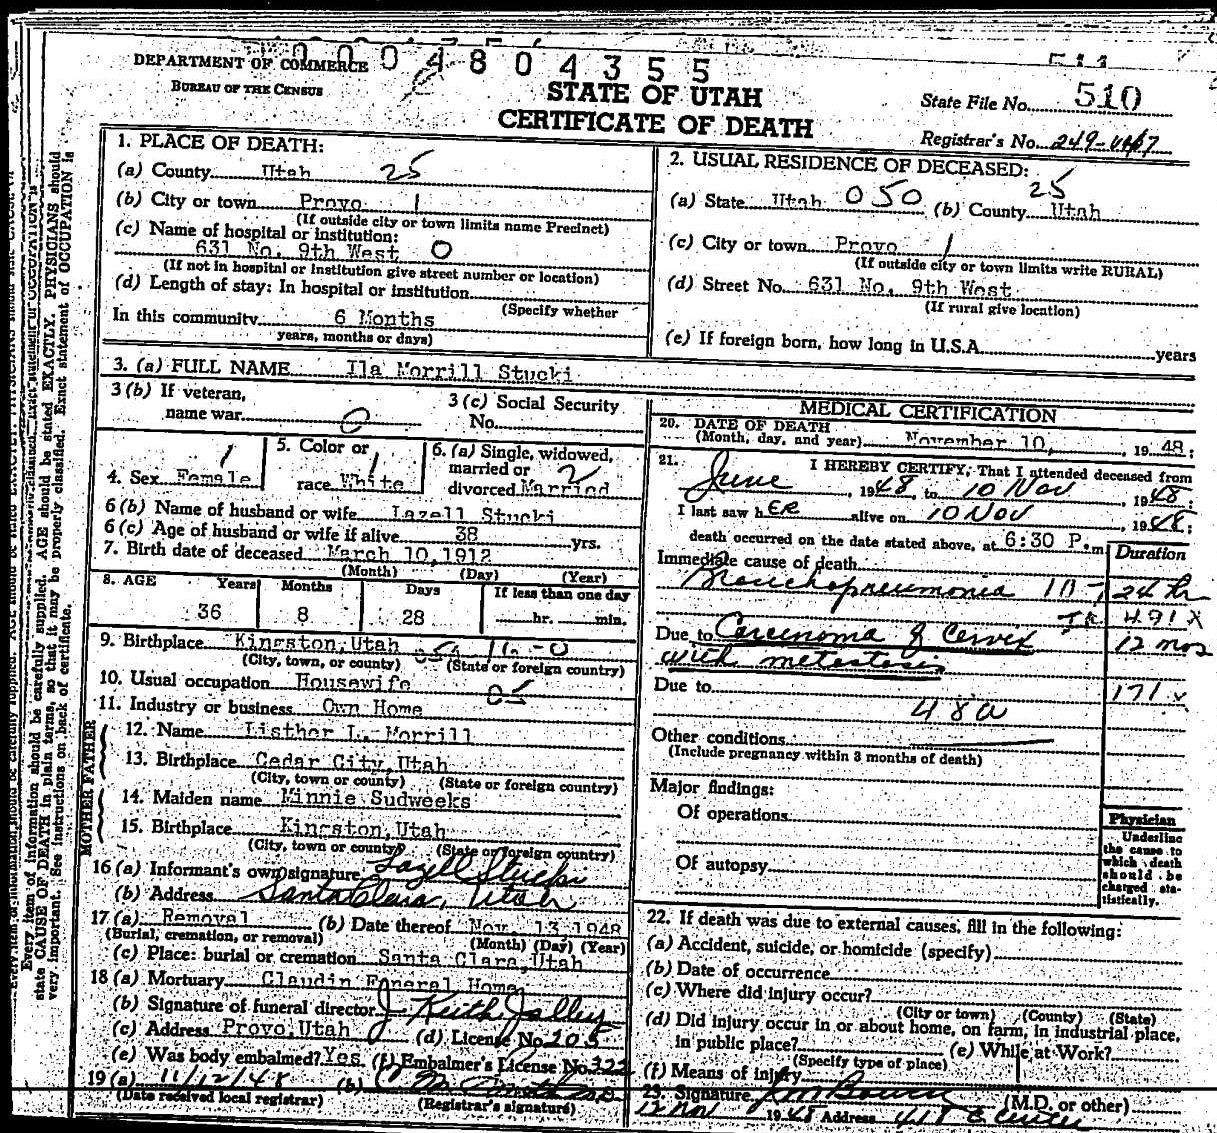 0004804355
DEPARTMENT OF COMMERCE
BUREAU OF THE CENSUS
STATE OF UTAH
CERTIFICATE OF DEATH
State File No. 510
Registrar's No. 249-
1. PLACE OF DEATH:
(a) County Utah 25
(b) City or town Provo 1
(If outside city or town limits name Precinct)
(c) Name of hospital or institution:
631 No. 9th West 0
(If not in hospital or institution give street number or location)
(d) Length of stay: In hospital or institution
(Specify whether
In this community 6 Months
years, months or days)
2. USUAL RESIDENCE OF DECEASED:
25
(a) State Utah 050 (b) County Utah
(c) City or town Provo 1
(If outside city or town limits write RURAL)
(d) Street No. 631 No. 9th West
(If rural give location)
(e) If foreign born, how long in U.S.A. years
3. (a) FULL NAME Ila Morrill Stucki
3 (b) If veteran,
name war 0
3 (c) Social Security
No.
4. Sex Female 1
5. Color or
race White 1
6. (a) Single, widowed,
married or 2
divorced Married
6 (b) Name of husband or wife Lazell Stucki
6 (c) Age of husband or wife if alive 38 yrs.
7. Birth date of deceased March 10, 1912
(Month) (Day) (Year)
8. AGE Years Months Days If less than one day
36 8 28 hr. min.
9. Birthplace Kingston, Utah
(City, town, or county) (State or foreign country)
10. Usual occupation Housewife
11. Industry or business Own Home
FATHER
12. Name Listher L. Morrill
13. Birthplace Cedar City, Utah
(City, town or county) (State or foreign country)
MOTHER
14. Maiden name Minnie Sudweeks
15. Birthplace Kingston, Utah
(City, town or county) (State or foreign country)
16 (a) Informant's own signature Lazell Stucki
(b) Address Santa Clara, Utah
17 (a) Removal (b) Date thereof Nov. 13, 1948
(Burial, cremation, or removal) (Month) (Day) (Year)
(c) Place: burial or cremation Santa Clara, Utah
18 (a) Mortuary Claudin Funeral Home
(b) Signature of funeral director J. Keith Jolley
(c) Address Provo, Utah (d) License No. 205
(e) Was body embalmed? Yes (f) Embalmer's License No. 322
19 (a) 11/12/48 (b)
(Date received local registrar) (Registrar's signature)
MEDICAL CERTIFICATION
20. DATE OF DEATH
(Month, day, and year) November 10, , 19 48 ;
21. I HEREBY CERTIFY, That I attended deceased from
June , 1948, to 10 Nov , 1948;
I last saw hER alive on 10 Nov , 1948;
death occurred on the date stated above, at 6:30 P.m.
Duration
Immediate cause of death
Bronchopneumonia 24 hr
491 X
Due to Carcinoma of Cervix 12 mos
with metestosis
Due to 171 x
48a
Other conditions
(Include pregnancy within 3 months of death)
Major findings:
Of operations
Of autopsy
Physician
Underline
the cause to
which death
should be
charged sta-
tistically.
22. If death was due to external causes, fill in the following:
(a) Accident, suicide, or homicide (specify)
(b) Date of occurrence
(c) Where did injury occur?
(City or town) (County) (State)
(d) Did injury occur in or about home, on farm, in industrial place,
in public place? (e) While at Work?
(Specify type of place)
(f) Means of injury
23. Signature (M.D. or other)
12 Nov 1948 Address 418 E Center
Every item of information should be carefully supplied. AGE should be stated EXACTLY. PHYSICIANS should
state CAUSE OF DEATH in plain terms, so that it may be properly classified. Exact statement of OCCUPATION is
very important. See instructions on back of certificate.